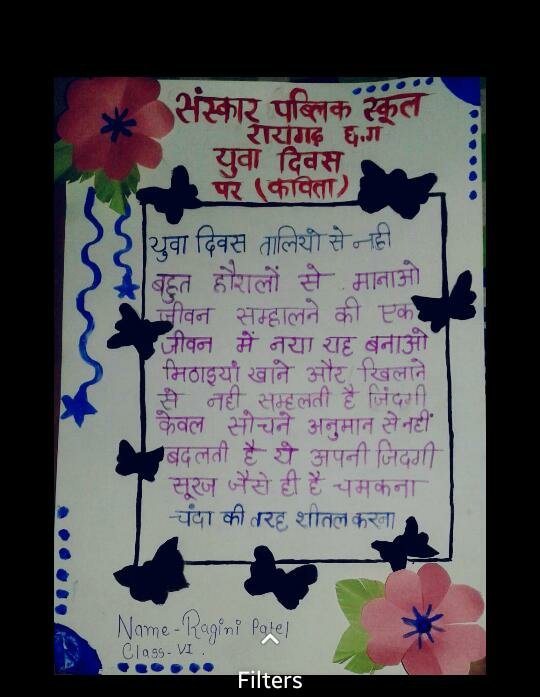 संस्कार पब्लिक स्कूल
रायगढ़ छ.ग
युवा दिवस
पर (कविता)
युवा दिवस तालियो से नही
बहुत हौसलों से मानाओ
जीवन सम्हालने की एक
जीवन में नया राह बनाओ
मिठाइयां खाने और खिलाने
से नही सम्हलती है जिंदगी
केवल सोचने अनुमान से नहीं
बदलती है ये अपनी जिदगी
सूरज जैसे ही है चमकना
चंदा की तरह शीतल करना
Name - Ragini Patel
Class - VI.
Filters